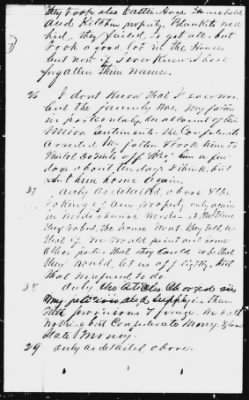 They took also Cattle Hogs Household
and Kitchen property, Blankets not
hid, they failed to get all but
took a good lot in the House
but now if I ever knew I have
forgotten their names.
26 I dont Know that I ever was
but the family was. My father
in particularly on account of his
Union Sentiments. the Confederates
arrested My father & took him to
him a few
days about ten days I think, but
27 Only as detailed above & the
taking of our property only again
They robed the House Most they told us
that if we would point out some
other parties that they could rob that
they would let us off lightly but
that we refused to do.
28 Only the articles charged in
my petition also supplied them
with provisions & forage. We had
nothing but Confederate Money & some
State Money.
29 Only as detailed above.